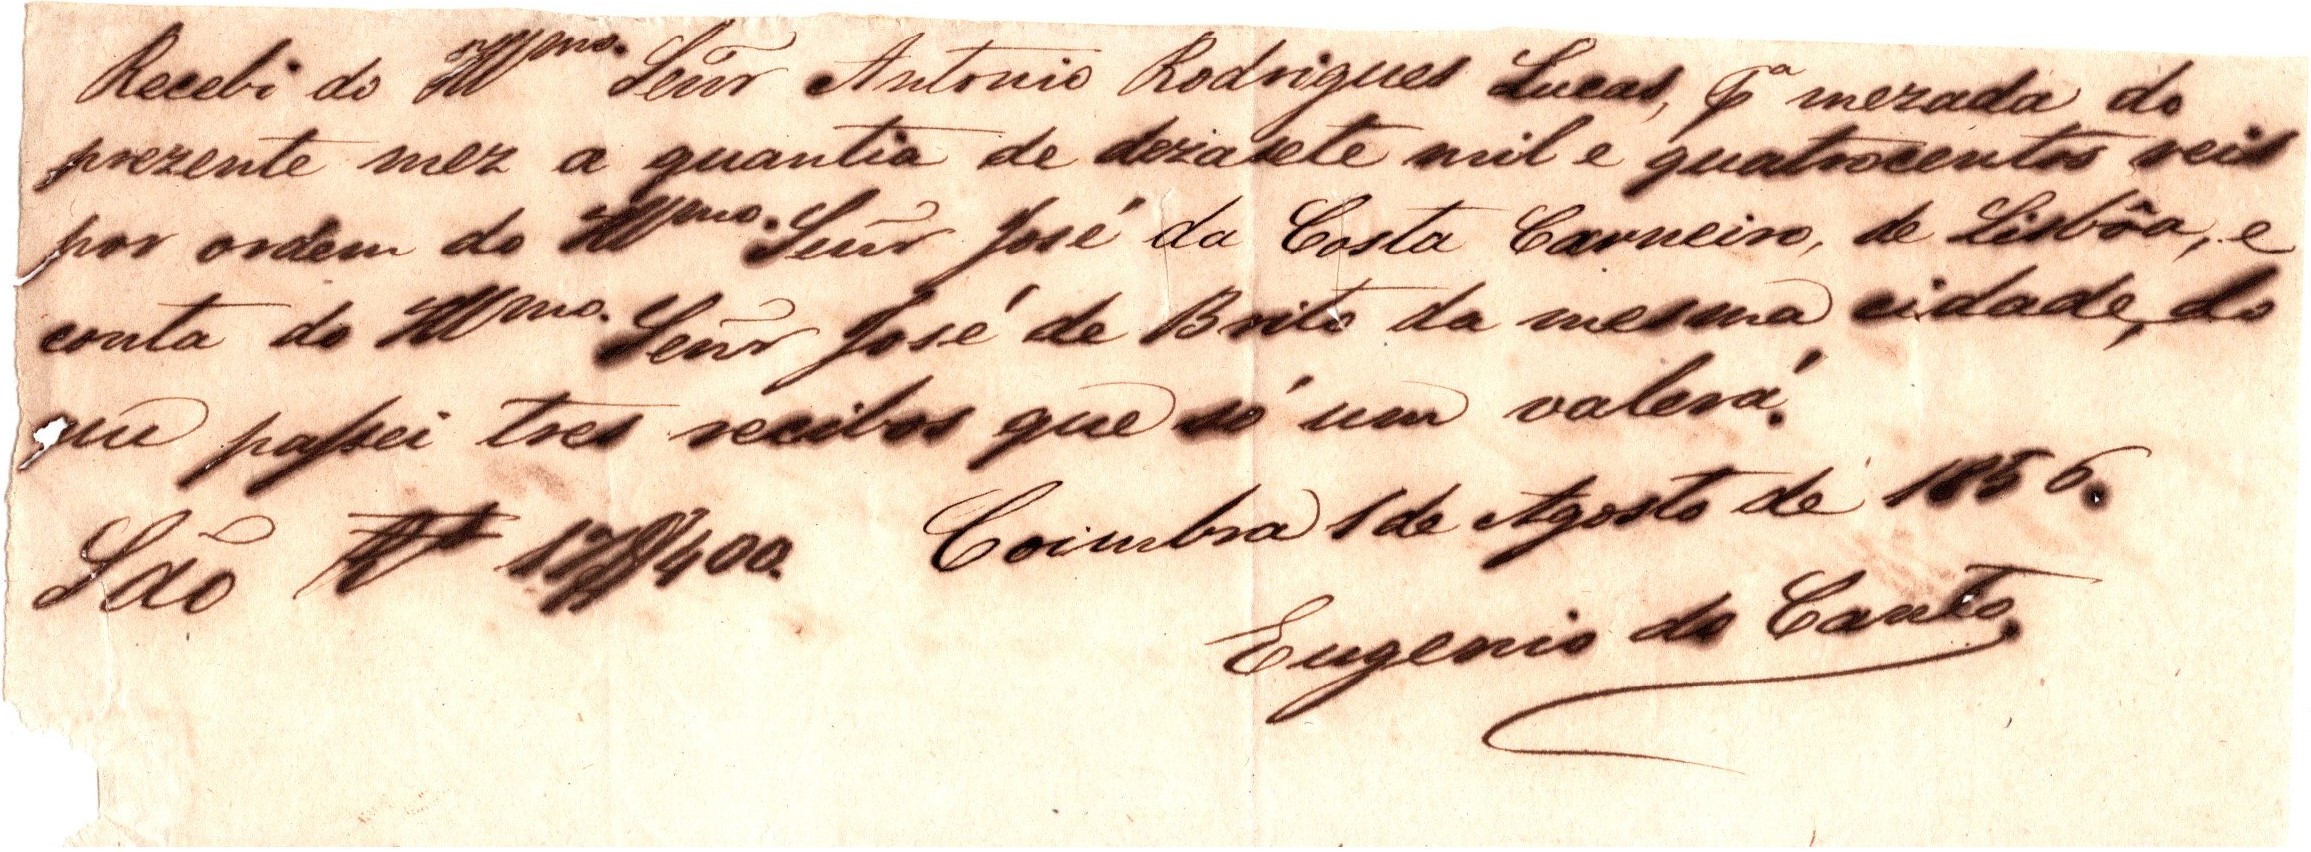 Recebi do Illmo. Senr̃ Antonio Rodrigues Lucas, pa mezada do
prezente mez a quantia de dezasete mil e quatrocentos reis
por ordem do Illmo. Senr̃ José da Costa Carneiro, de Lisbôa, e
conta do Illmo. Senr̃ José de Brito da mesma cidade, do
que passei tres recibos que só um valerá.
São Rs 17$400. Coimbra 1 de Agosto de 1856.
Eugenio do Canto